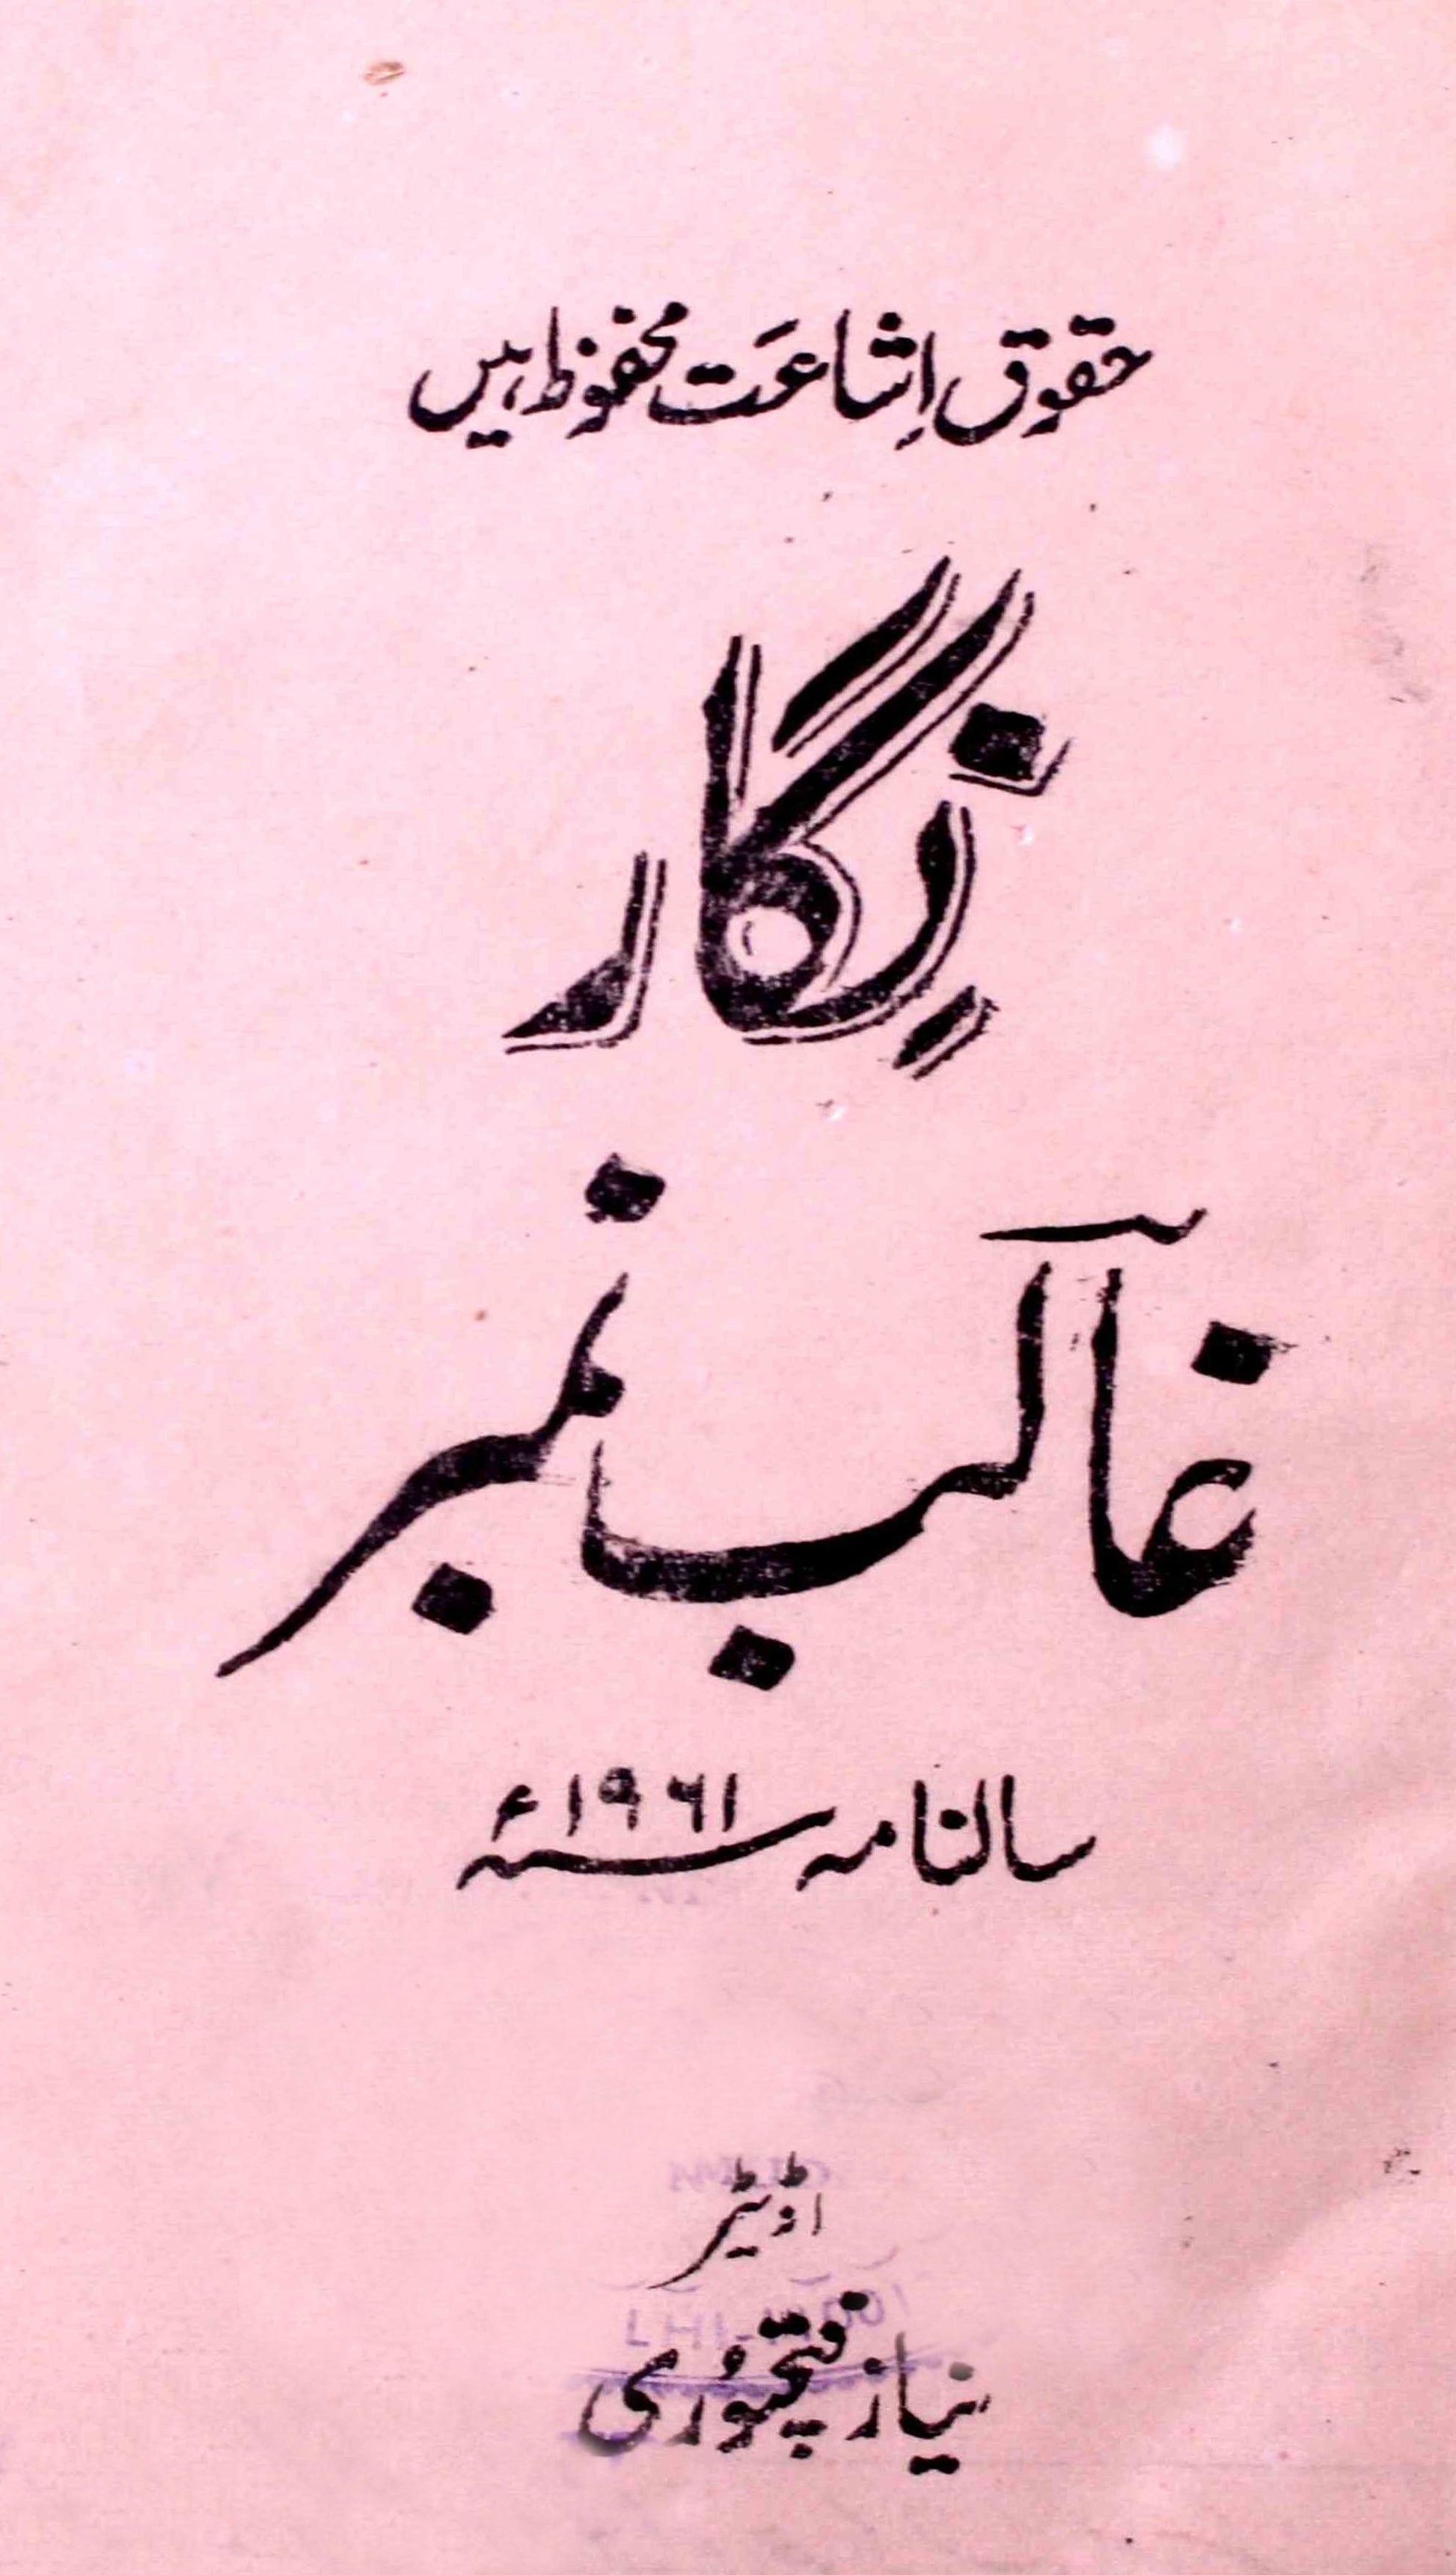 حقوقِ اِشاعَت محفوظ ہیں
نِگار
غالب نمبر
سالنامہ سنہ ۱۹۶۱ء
اڈیٹر
نیاز فتحپُوری